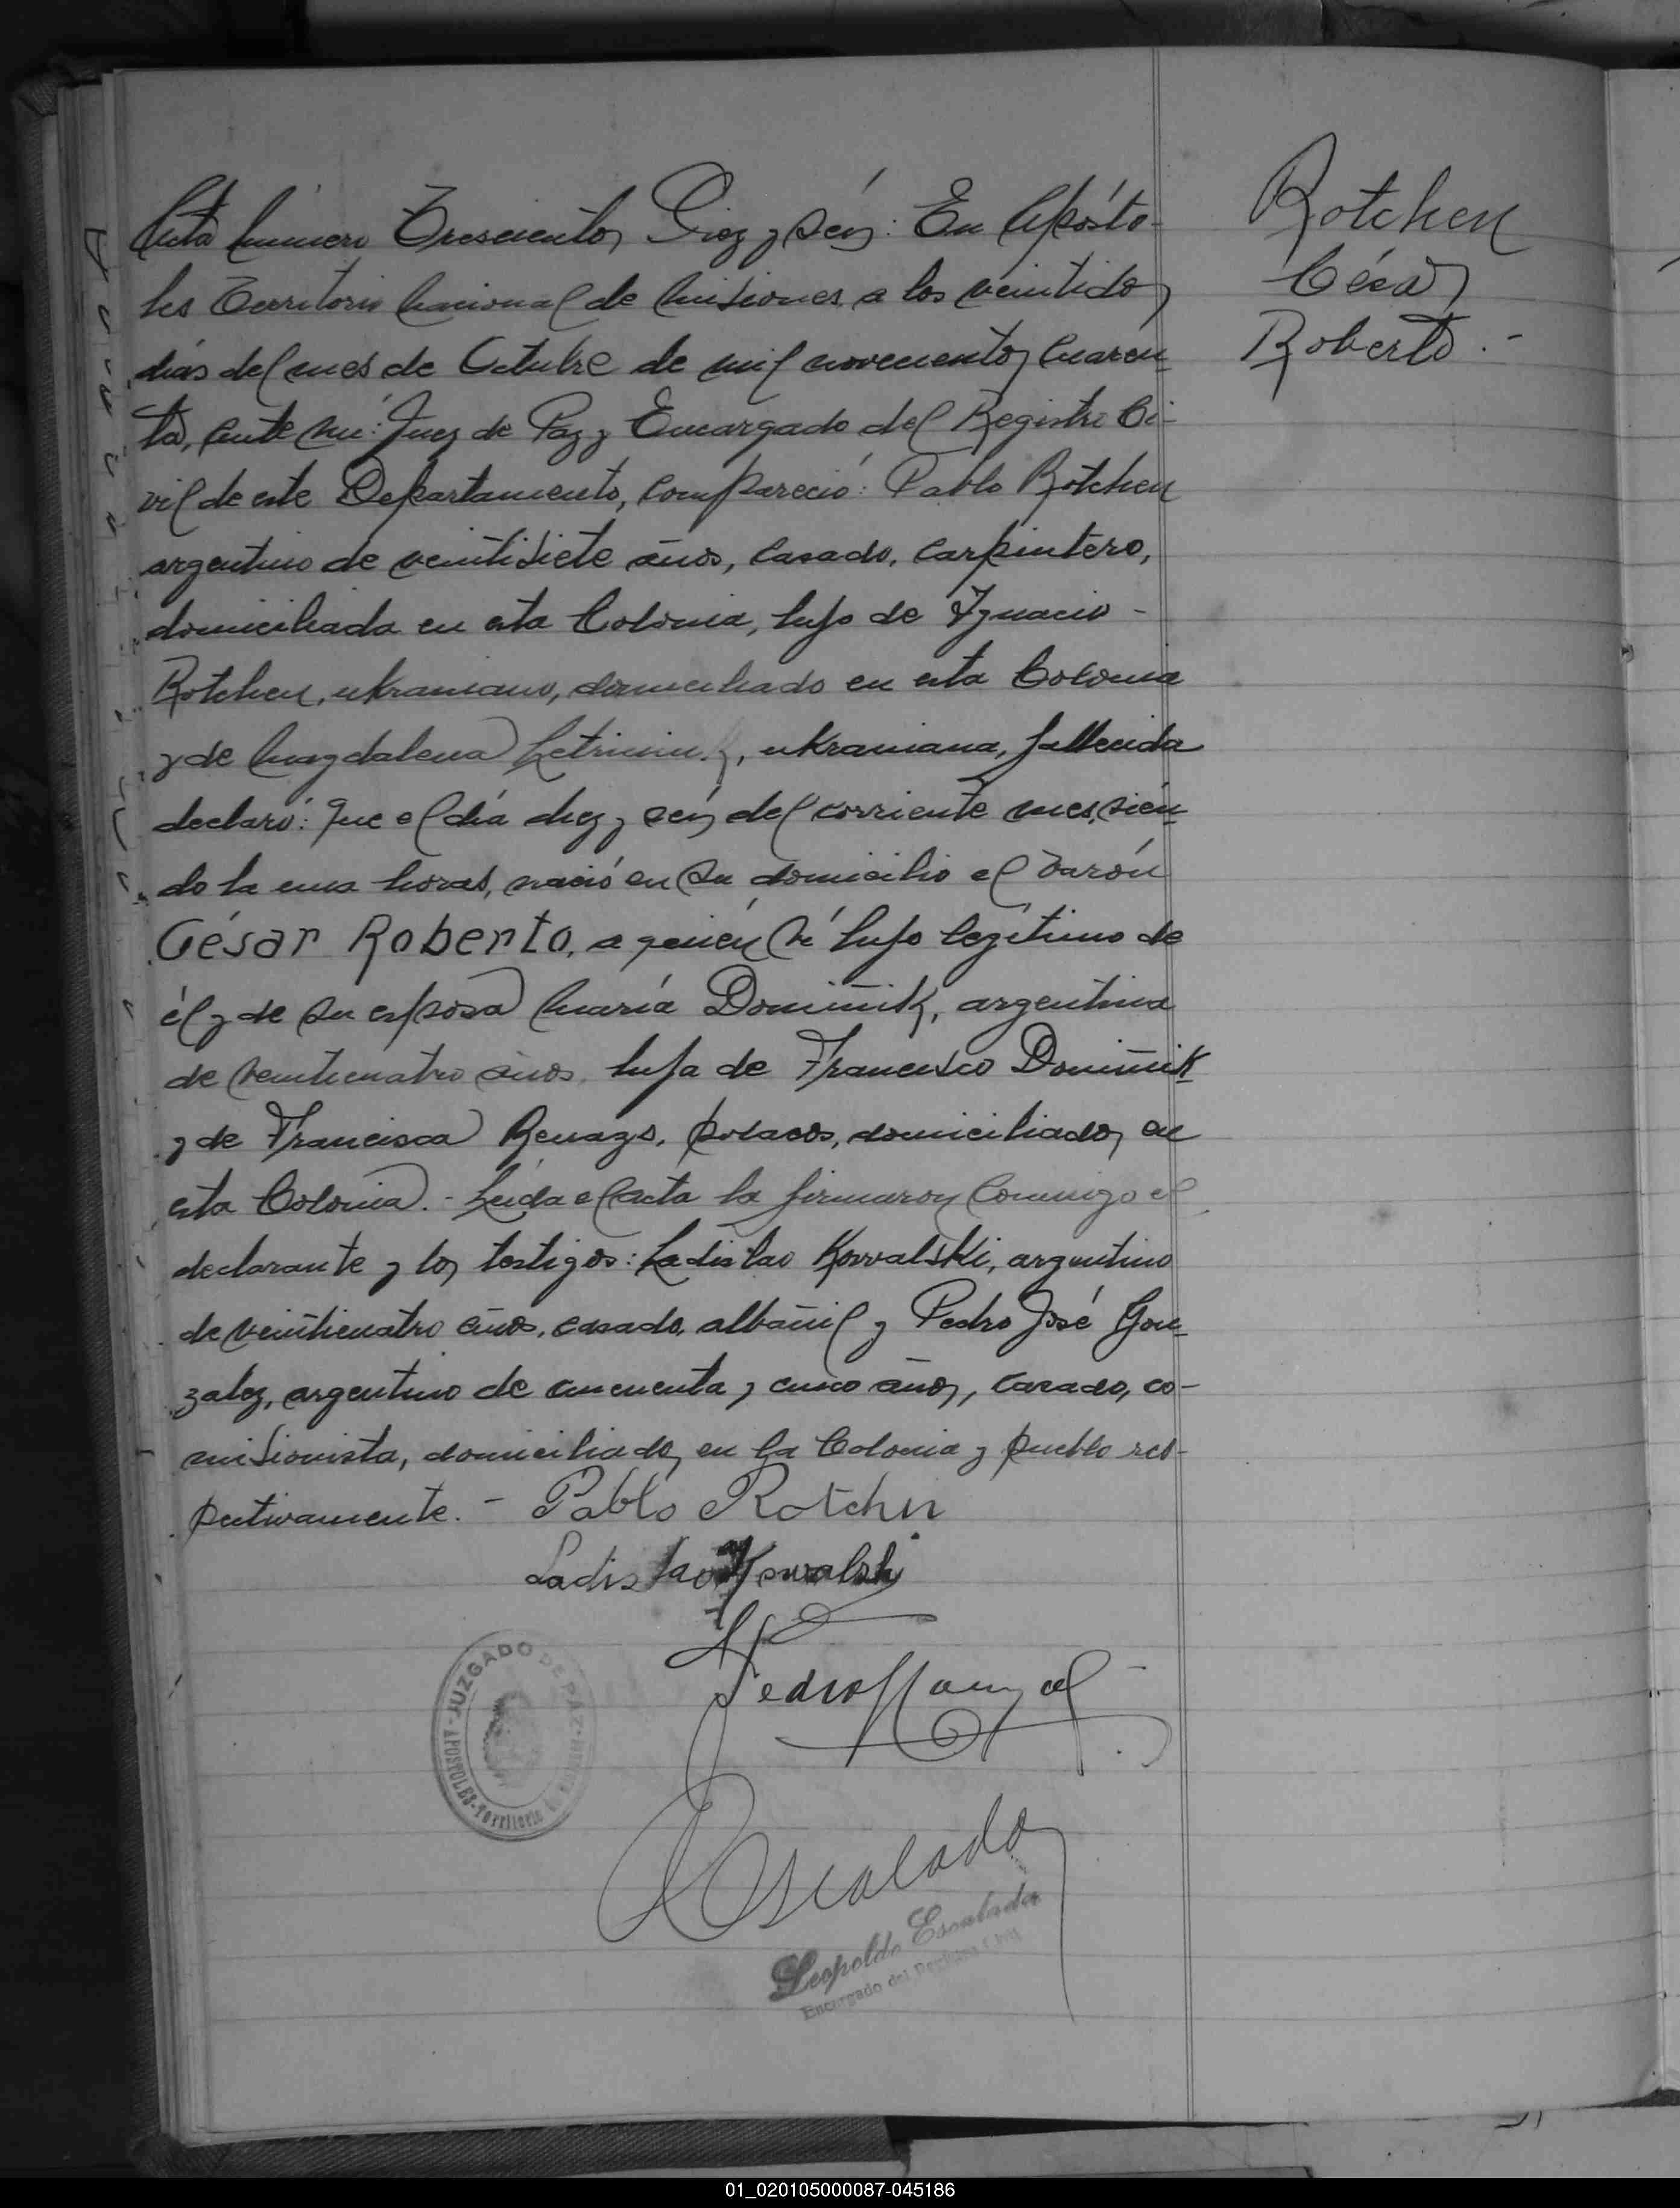 Acta número Trescientos Diez y séis: En Apósto-
les Territorio Nacional de Misiones, a los veintidos
dias del mes de Octubre de mil novecientos cuaren-
ta, ante mí: Juez de Paz y Encargado del Registro Ci-
vil de este Departamento, compareció: Pablo Rotchen
argentino de veintisiete años, casado, carpintero,
domiciliado en esta Colonia, hijo de Ygnacio -
Rotchen, ukraniano, domiciliado en esta Colonia
y de Magdalena, ukraniana, fallecida
declaró: Que el día diez y séis del corriente mes, sién-
do la una horas, nació en su domicilio el varón
César Roberto, a quién vé hijo legítimo de
él y de su esposa María Dominik, argentina
de veinticuatro años, hija de Francisco Dominik
y de Francisca, polacos, domiciliados en
esta Colonia. - Leida el acta la firmaron conmigo el
declarante y los testigos: Ladislao Kowalski, argentino
de veinticuatro años, casado, albañil y Pedro José Gon-
zalez, argentino de cincuenta y cinco años, casado, co-
misionista, domiciliados en la Colonia y pueblo res-
pectivamente. - Pablo Rotchen
Ladislao Kowalski
Leopoldo Escalada
Encargado del Registro Civil
JUZGADO DE PAZ
APOSTOLES - Territorio
Rotchen
César
Roberto. -
01_020105000087-045186